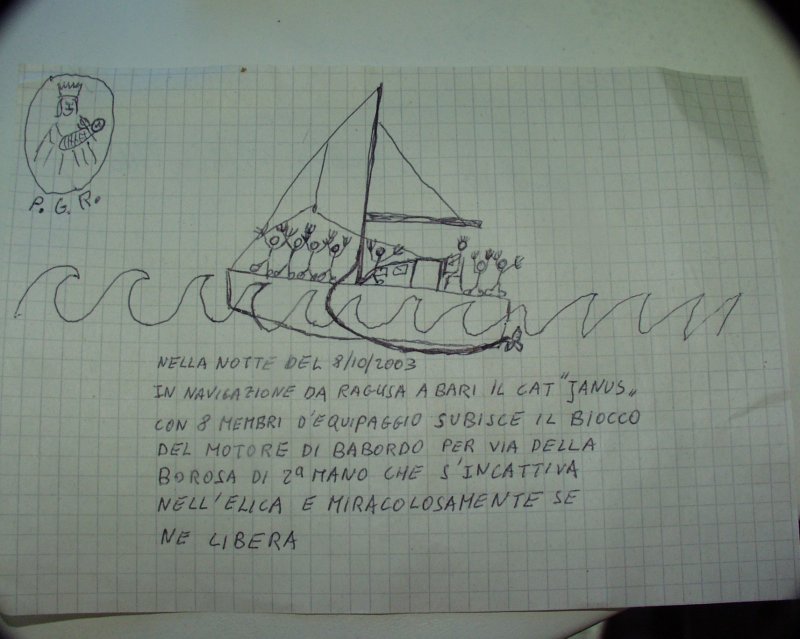 P. G. R.
NELLA NOTTE DEL 8/10/2003
IN NAVIGAZIONE DA RAGUSA A BARI IL CAT "JANUS"
CON 8 MEMBRI D'EQUIPAGGIO SUBISCE IL BLOCCO
DEL MOTORE DI BABORDO PER VIA DELLA
BOROSA DI 2ª MANO CHE S'INCATTIVA
NELL'ELICA E MIRACOLOSAMENTE SE
NE LIBERA